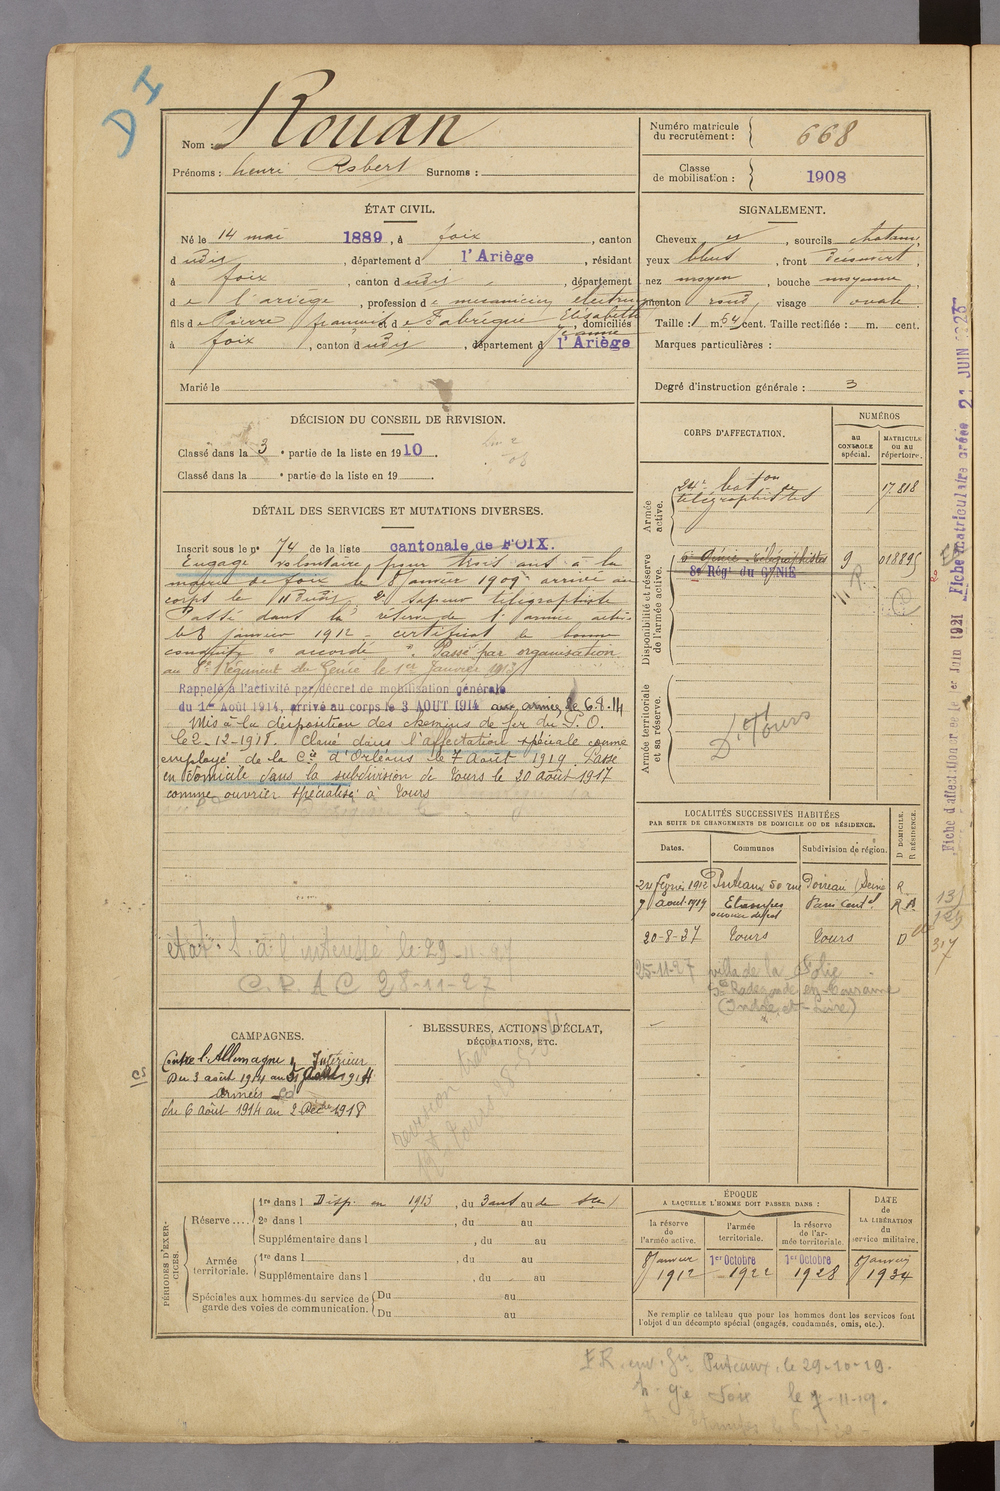 D I
Nom : Rouan
Prénoms : henri Robert Surnoms :
Numéro matricule du recrutement : 668
Classe de mobilisation : 1908
ÉTAT CIVIL.
Né le 14 mai 1889, à foix, canton
dudit, département d l'Ariège, résidant
à foix, canton dudit, département
de l'ariège, profession de mecanicien electricien
fils de Pierre françois et de Fabrègue Elisabeth Jeanne, domiciliés
à foix, canton dudit, département d l'Ariège
Marié le
SIGNALEMENT.
Cheveux et, sourcils chatains,
yeux bleus, front découvert,
nez moyen, bouche moyenne,
menton rond, visage ovale
Taille : 1 m. 54 cent. Taille rectifiée : m. cent.
Marques particulières :
Degré d'instruction générale : 3
DÉCISION DU CONSEIL DE REVISION.
Classé dans la 3e partie de la liste en 1910.
Classé dans la e partie de la liste en 19
DÉTAIL DES SERVICES ET MUTATIONS DIVERSES.
Inscrit sous le no 74 de la liste cantonale de FOIX.
Engagé volontaire pour trois ans à la
mairie de foix le 8 janvier 1909 arrivé au
corps le 11 dudit, 2e sapeur télégraphiste
Passé dans la réserve de l'armée active
le 8 janvier 1912 - certificat de bonne
conduite "accordé". Passé par organisation
au 8e Régiment du Génie le 1er Janvier 1913
Rappelé à l'activité par décret de mobilisation générale
du 1er Août 1914, arrivé au corps le 3 AOUT 1914 aux armées le 6.8.14
Mis à la disposition des chemins de fer du P.O.
le 2-12-1918. Classé dans l'affectation spéciale comme
employé de la Cie d'Orléans le 7 Août 1919. Passé
en domicile dans la subdivision de Tours le 20 août 1917
comme ouvrier spécialisé à Tours
le 29-11-27
C.R.A C 28-11-27
CORPS D'AFFECTATION.
NUMÉROS
au CONTROLE spécial.
MATRICULE ou au répertoire.
Armée active.
24e baton de télégraphistes 17.818
Disponibilité et réserve de l'armée active.
Génie télégraphistes
8e Régt du GÉNIE 9 018895
Armée territoriale et sa réserve.
Dt Tours
LOCALITÉS SUCCESSIVES HABITÉES
PAR SUITE DE CHANGEMENTS DE DOMICILE OU DE RÉSIDENCE.
Dates. Communes Subdivision de région. D DOMICILE. R RÉSIDENCE.
24 février 1912 Puteaux 50 rue Poireau (Seine R
7 aout 1919 Etampes Paris Centl R A
20-8-27 Tours Tours D
25-11-27 villa de la Folie
Ste Radegonde en Touraine
(Indre et Loire)
317
CAMPAGNES.
Contre l'Allemagne Intérieur
Du 3 août 1914 au 5 Août 1914
Armées
du 6 Août 1914 au 2 Déc 1918
CS
BLESSURES, ACTIONS D'ÉCLAT,
DÉCORATIONS, ETC.
PÉRIODES D'EXERCICES.
Réserve .... 1re dans l Disp. en 1913, du 3 ant au de
2e dans l , du au
Supplémentaire dans l , du au
Armée territoriale. 1re dans l , du au
Supplémentaire dans l , du au
Spéciales aux hommes du service de garde des voies de communication. Du au
Du au
ÉPOQUE
A LAQUELLE L'HOMME DOIT PASSER DANS :
la réserve de l'armée active. l'armée territoriale. la réserve de l'armée territoriale.
DATE de LA LIBÉRATION du service militaire.
8 janvier 1912 1er Octobre 1922 1er Octobre 1928 8 janvier 1934
Ne remplir ce tableau que pour les hommes dont les services font
l'objet d'un décompte spécial (engagés, condamnés, omis, etc.).
F.R. env. Gie Puteaux, le 29-10-19.
Gie Foix le 7-11-19.
Fiche d'affectation créée le 1er Juin 1921 Fiche matriculaire créée 21 JUIN